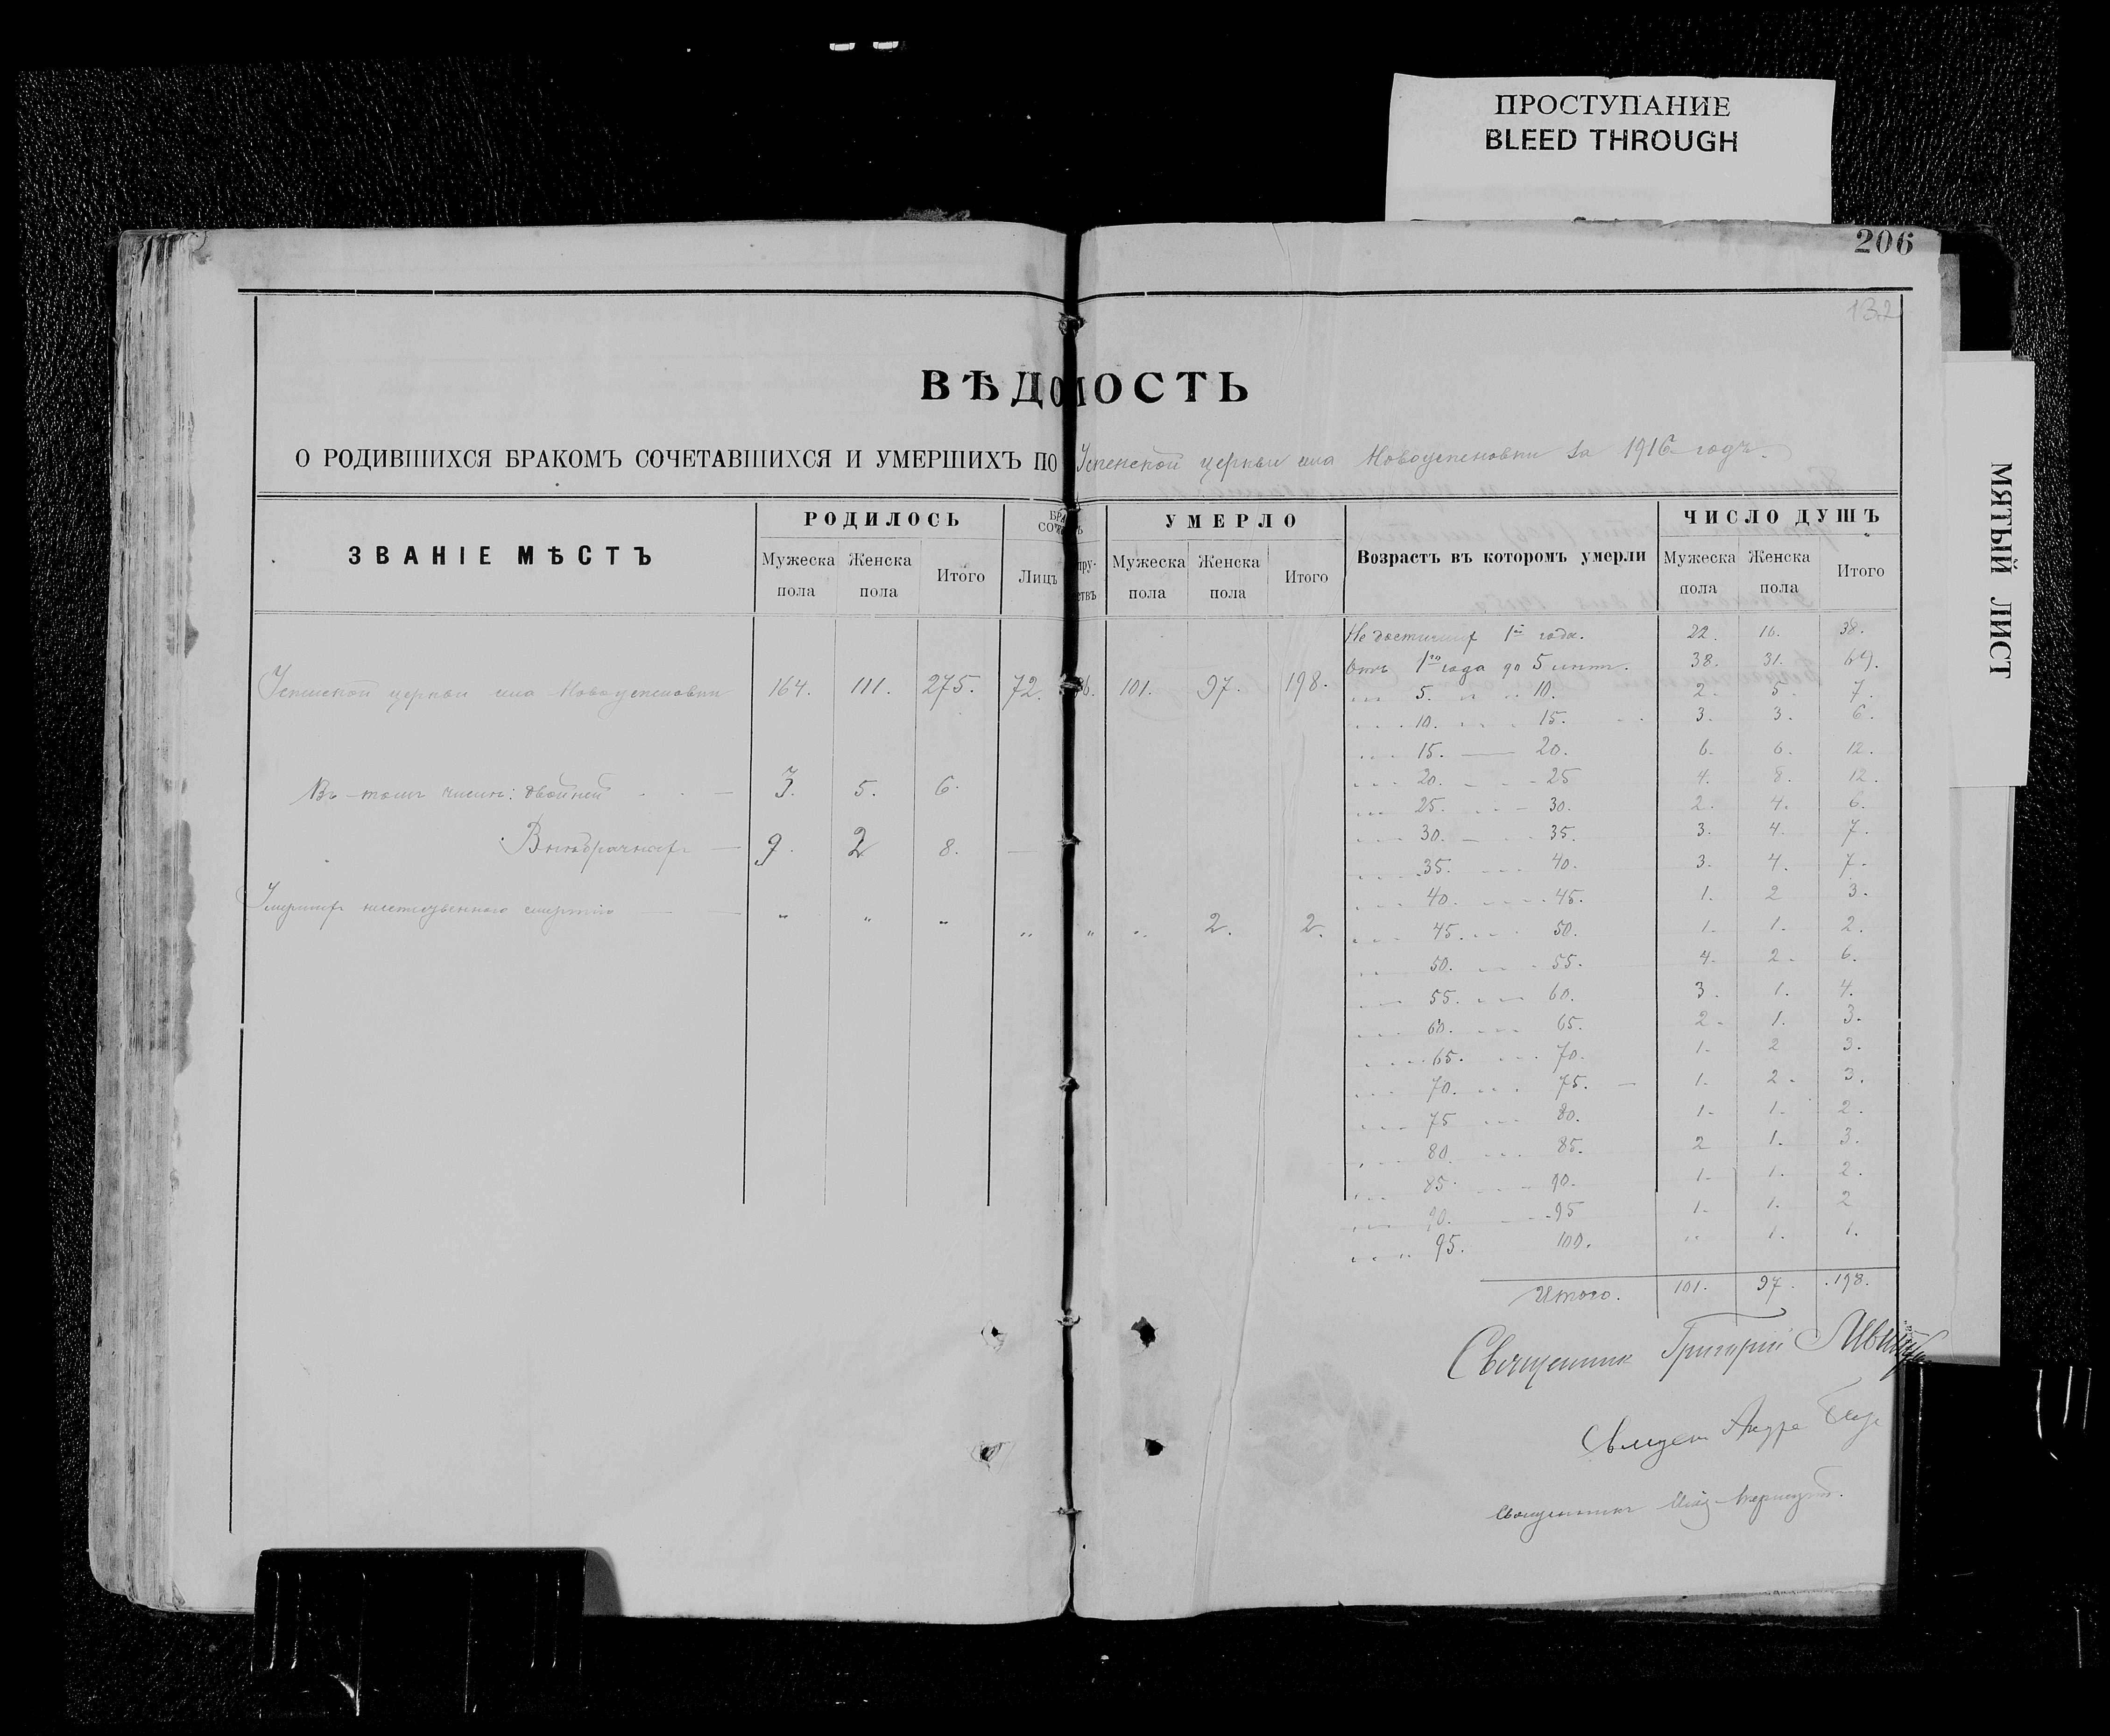 ПРОСТУПАНИЕ
BLEED THROUGH
206
132
МЯТЫЙ ЛИСТ
ВѢДОМОСТЬ
О РОДИВШИХСЯ БРАКОМЪ СОЧЕТАВШИХСЯ И УМЕРШИХЪ ПО Успенской церкви села Новоуспеновки за 1916 годъ.
ЗВАНІЕ МѢСТЪ РОДИЛОСЬ УМЕРЛО Возрастъ въ которомъ умерли ЧИСЛО ДУШЪ
Мужеска пола Женска пола Итого Лицъ Мужеска пола Женска пола Итого Мужеска пола Женска пола Итого
Не достигших 1го года. 22. 16. 38.
Отъ 1го года до 5 лѣтъ. 38. 31. 69.
Успенской церкви села Новоуспеновки 164. 111. 275. 72. 36. 101. 97. 198.
" 5. " 10. 2. 5. 7.
" 10. " 15. 3. 3. 6.
" 15. — 20. 6. 6. 12.
Въ томъ числѣ: двойней — 3. 5. 6.
" 20. - 25 4. 8. 12.
" 25. - 30. 2. 4. 6.
" 30. — 35. 3. 4. 7.
Внѣбрачныхъ — 9. 2 8. —
" 35. " 40. 3. 4. 7.
" 40. " 45. 1. 2 3.
Умершихъ неестественною смертію — — " " " " " " 2. 2.
" 45. " 50. 1. 1. 2.
" 50. " 55. 4. 2. 6.
" 55. " 60. 3. 1. 4.
" 60. " 65. 2. 1. 3.
" 65. " 70. 1. 2 3.
" 70. " 75. — 1. 2. 3.
" 75 " 80. 1. 1. 2.
" 80. " 85. 2 1. 3.
" 85. " 90. 1. 1. 2.
" 90. " 95 1. 1. 2
" 95. 100. " 1. 1.
Итого. 101. 97. 198.
Священник Григорій
Священ Андре
Священникъ